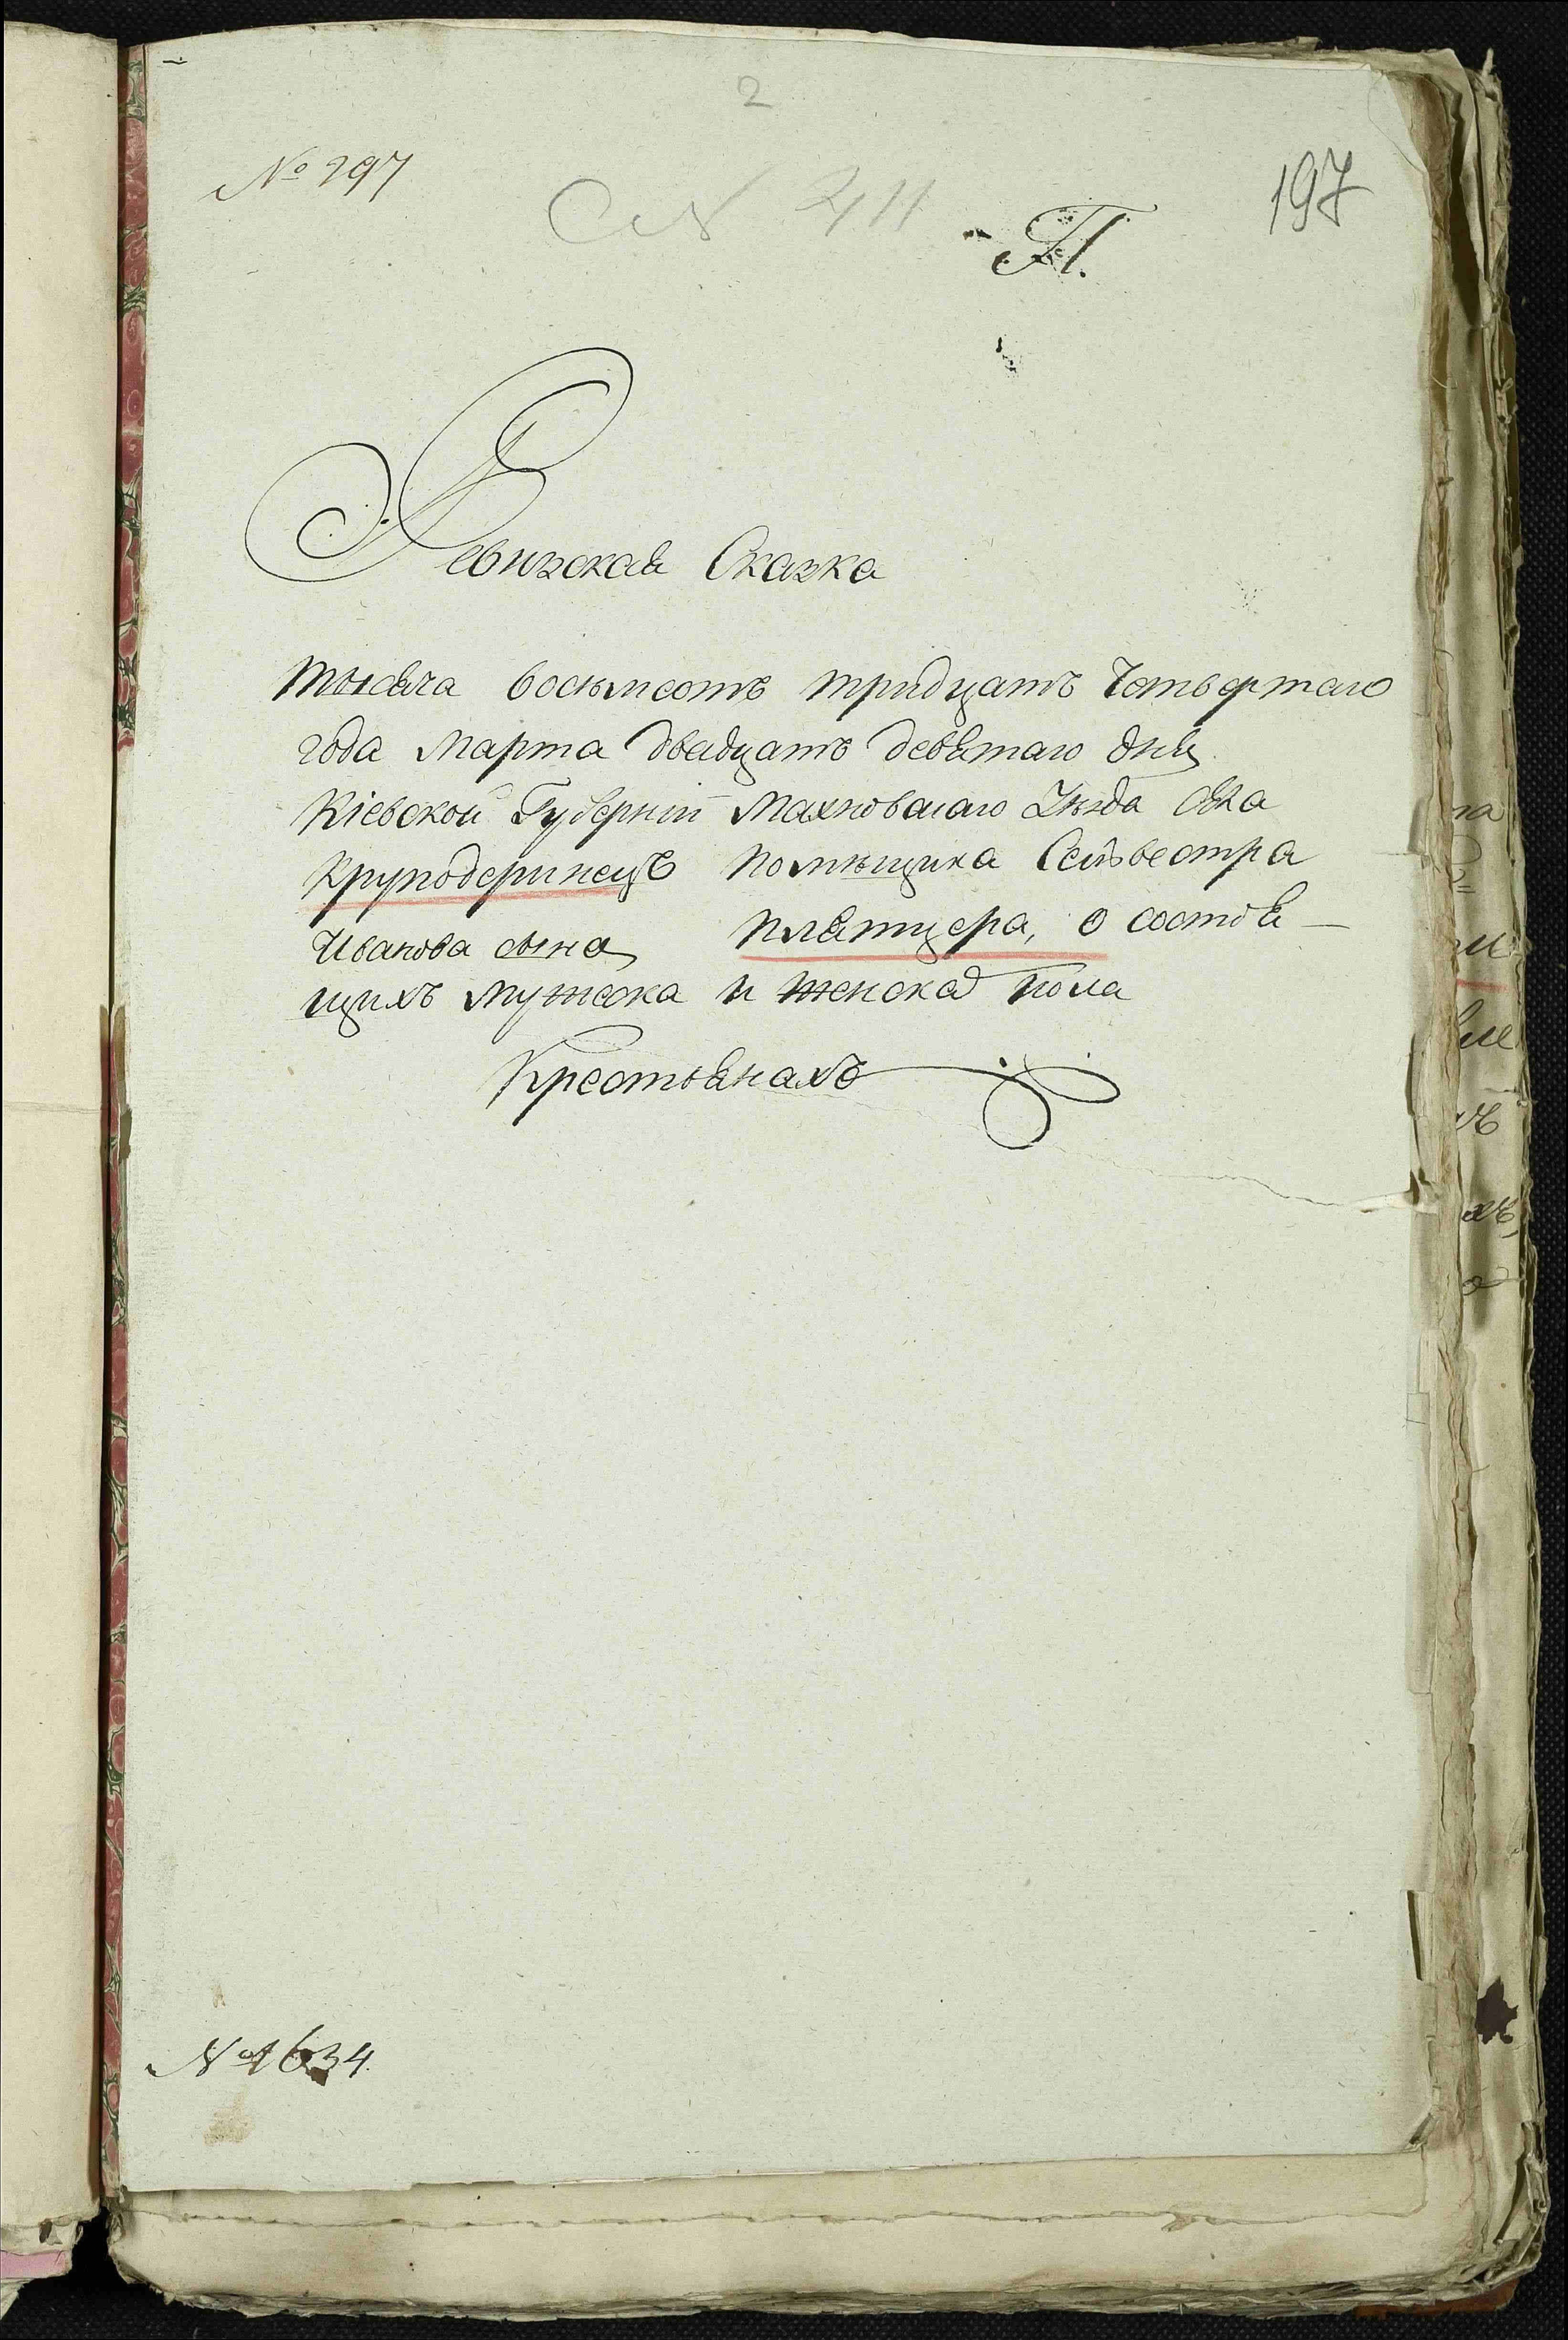 2
№ 297
197
П.
Ревизская Сказка
тысяча восьмсотъ тридцать Четвертаго
года Марта двадцать девятаго дня
Кіевской Губерніи Махновскаго Уѣзда Села
Круподеринецъ помѣщика Сельвестра
Иванова сына Плятцера, о состоя—
щихъ мужеска и женска пола
Крестьянахъ
№ 1634.